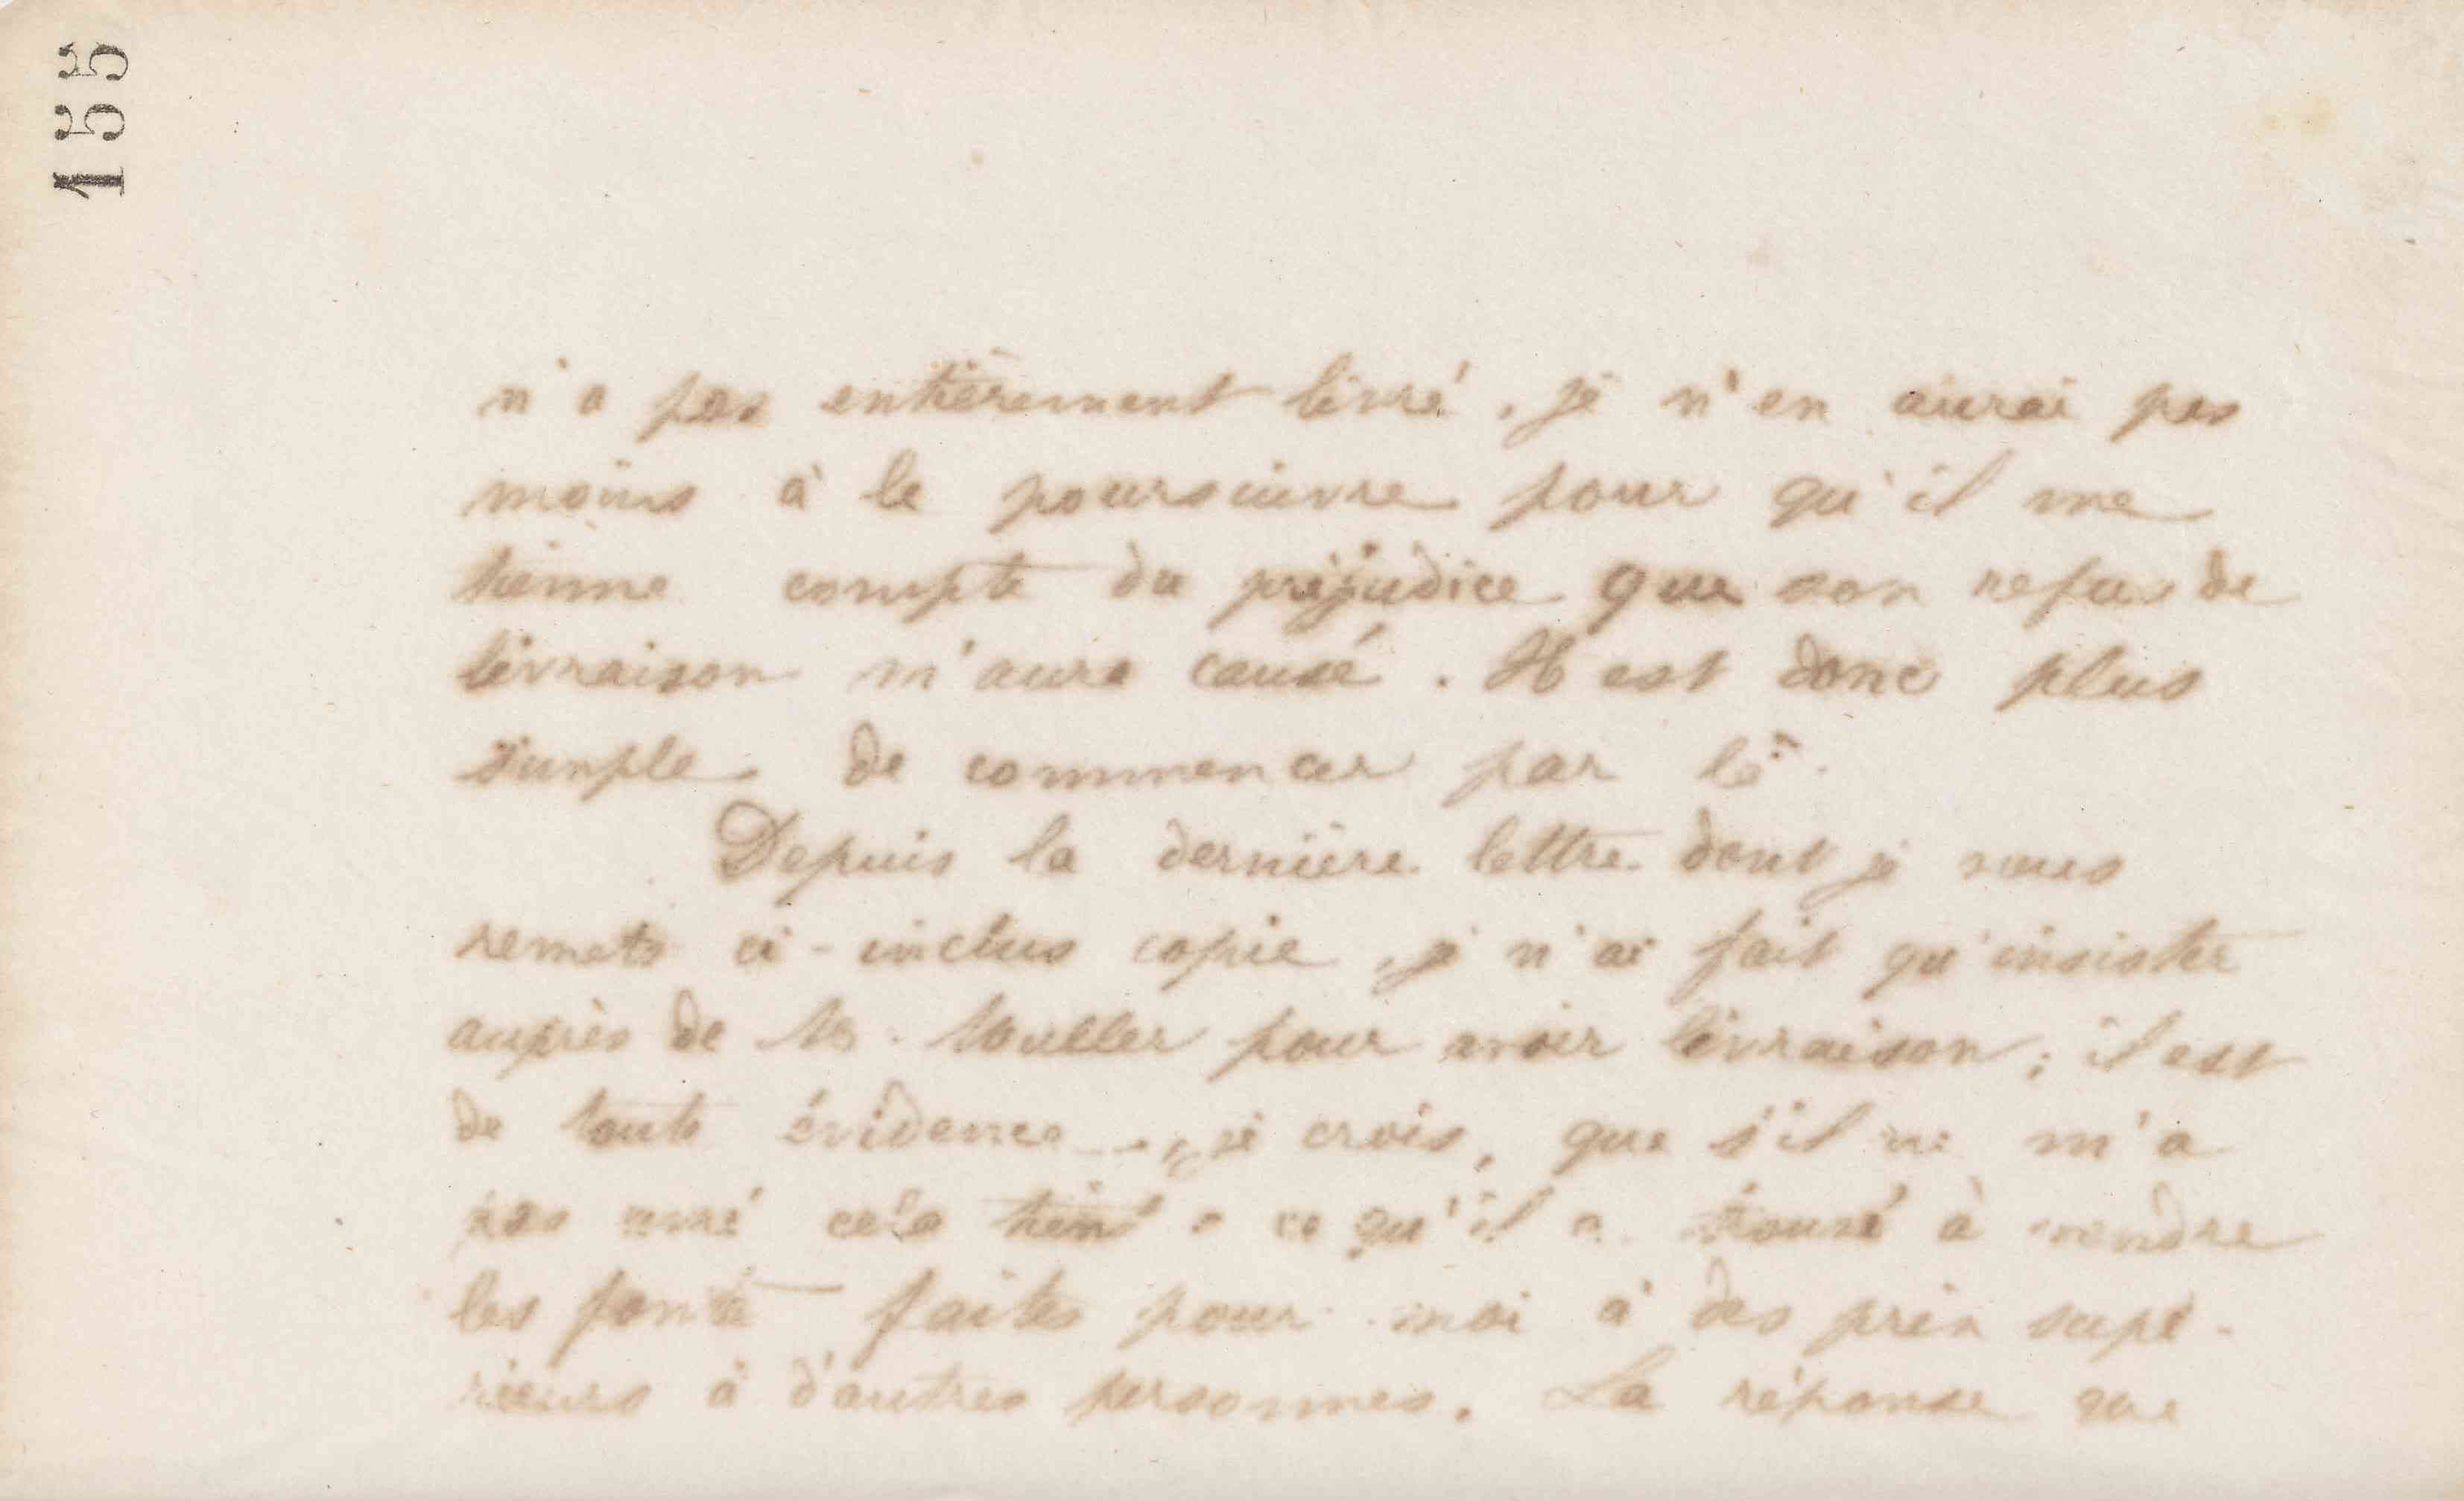 155
n'a pas entièrement livré, je n'en aurai pas
moins à le poursuivre pour qu'il me
tienne compte du préjudice que son refus de
livraison m'aura causé. Il est donc plus
simple de commencer par là.
Depuis la dernière lettre dont je vous
remets ci-inclus copie, je n'ai fait qu'insister
auprès de M. Muller pour avoir livraison; il est
de toute évidence, je crois, que s'il ne m'a
pas livré cela tient à ce qu'il a trouvé à vendre
les fontes faites pour moi à des prix supé-
rieurs à d'autres personnes. La réponse que